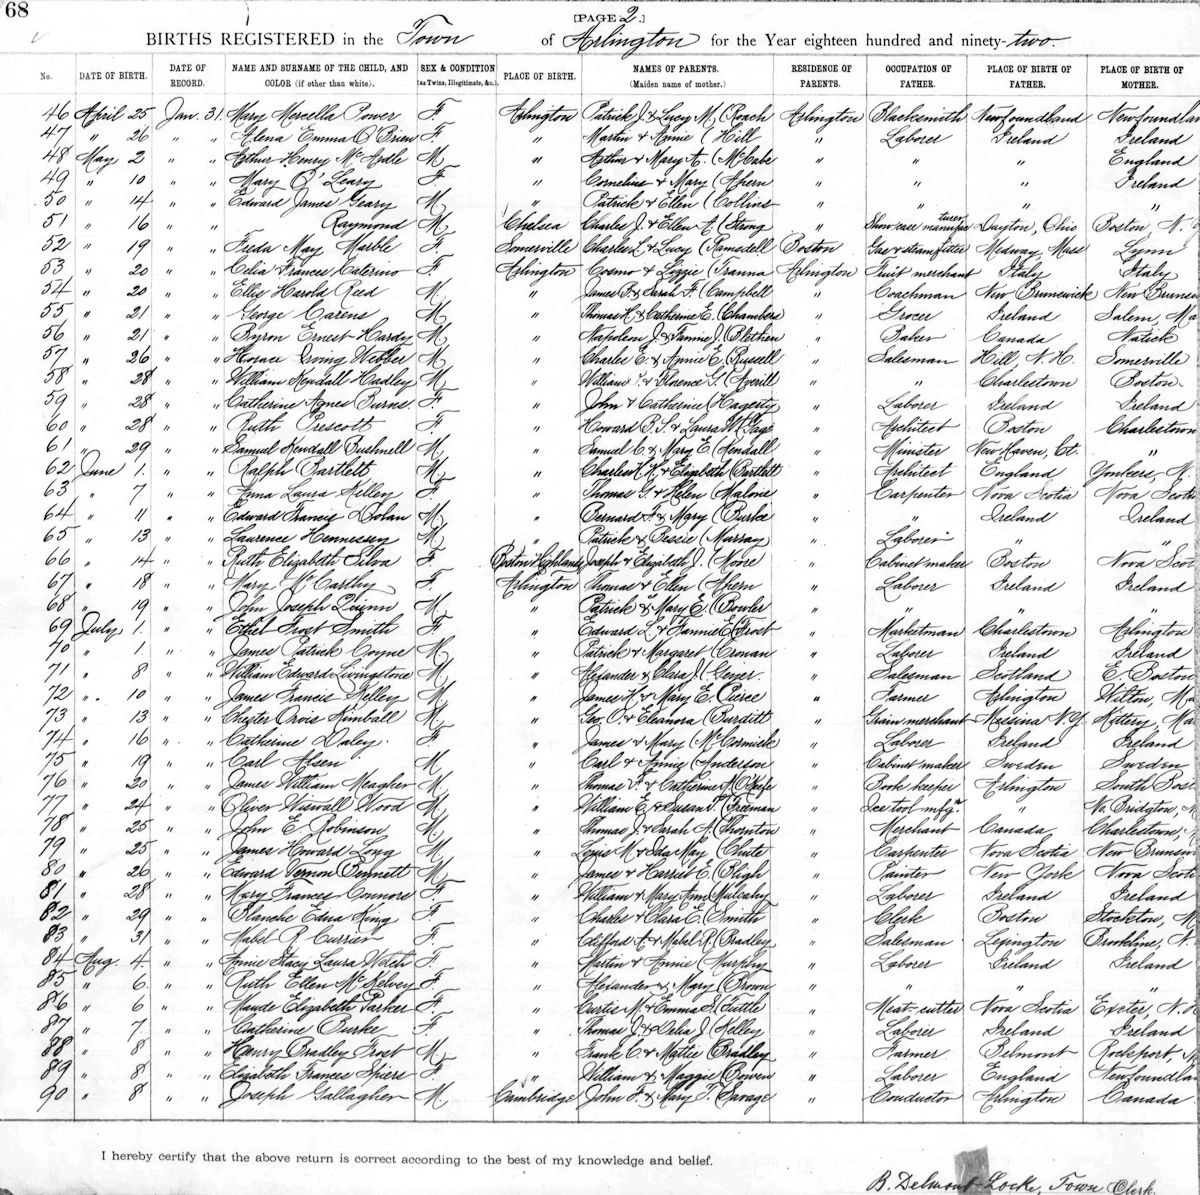 68
[PAGE 2.]
BIRTHS REGISTERED in the Town of Arlington for the Year eighteen hundred and ninety-two.
No. DATE OF BIRTH. DATE OF RECORD. NAME AND SURNAME OF THE CHILD, AND COLOR (if other than white). SEX & CONDITION (as Twins, Illegitimate, &c.) PLACE OF BIRTH. NAMES OF PARENTS. (Maiden name of mother.) RESIDENCE OF PARENTS. OCCUPATION OF FATHER. PLACE OF BIRTH OF FATHER. PLACE OF BIRTH OF MOTHER.
46 April 25 Jan. 31. Mary Mercella Power F. Arlington Patrick J. & Lucy M. (Roach Arlington Blacksmith Newfoundland Newfoundlan
47 " 26 " " Helena Emma O'Brien F. " Martin & Annie (Hill " Laborer Ireland Ireland
48 May 2 " " Arthur Henry McArdle M. " Arthur & Mary A. (McCabe " " " England
49 " 10 " " Mary O'Leary F. " Cornelius & Mary (Ahern " " " Ireland
50 " 14 " " Edward James Geary M. " Patrick & Ellen (Collins " " " "
51 " 16 " " Raymond M. Chelsea Charles J. & Ellen A. (Strong " Show case manufacturer Dayton, Ohio Boston, N.
52 " 19 " " Freda May Marble F. Somerville Charles L. & Lucy (Ramsdell Boston Gas & steam fitter Medway, Mass Lynn
53 " 20 " " Celia Frances Caterino F. Arlington Cosmo & Lizzie (Franna Arlington Fruit merchant Italy Italy
54 " 20 " " Ellis Harold Reed M. " James B. & Sarah F. (Campbell " Coachman New Brunswick New Bruns
55 " 21 " " George Carens M. " Thomas H. & Catherine E. (Chambers " Grocer Ireland Salem, Ma
56 " 21 " " Byron Ernest Hardy M. " Napoleon J. & Fannie J. (Blethen " Baker Canada Natick
57 " 26 " " Horace Irving Webber M. " Charles E. & Annie E. (Russell " Salesman Hill, N.H. Somerville
58 " 28 " " William Kendall Hadley M. " William & Florence G. (Averill " " Charlestown Boston
59 " 28 " " Catherine Agnes Burns F. " John & Catherine (Hagerty " Laborer Ireland Ireland
60 " 28 " " Ruth Prescott F. " Howard B.S. & Laura M. Gage " Architect Boston Charlestown
61 " 29 " " Samuel Kendall Bushnell M. " Samuel C. & Mary E. (Kendall " Minister New Haven, Ct. "
62 June 1. " " Ralph Bartlett M. " Charles H. & Elizabeth (Bartlett " Architect England Yonkers, N.
63 " 7 " " Anna Laura Kelley F. " Thomas G. & Helen (Malone " Carpenter Nova Scotia Nova Scoti
64 " 11 " " Edward Francis Dolan M. " Bernard F. & Mary (Burke " " Ireland Ireland
65 " 13 " " Laurence Hennessey M. " Patrick & Bessie (Murray " Laborer " "
66 " 14 " " Ruth Elizabeth Silva F. Boston Highlands Joseph & Elizabeth J. (Moore " Cabinet maker Boston Nova Scot
67 " 18 " " Mary McCarthy F. Arlington Thomas & Ellen (Ahern " Laborer Ireland Ireland
68 " 19 " " John Joseph Quinn M. " Patrick & Mary E. (Bowler " " " "
69 July 1. " " Ethel Frost Smith F. " Edward L. & Fannie E. (Frost " Marketman Charlestown Arlington
70 " 1. " " James Patrick Coyne M. " Patrick & Margaret (Cronan " Laborer Ireland Ireland
71 " 8 " " William Edward Livingstone M. " Alexander & Clara J. (Geyer " Salesman Scotland E. Boston
72 " 10 " " James Francis Kelley M. " James H. & Mary E. (Pierce " Farmer Arlington Wilton, Ma
73 " 13 " " Chester Orvis Kimball M. " Geo. O. & Eleanora (Burditt " Grain merchant Messina N.Y. Kittery, Ma
74 " 16 " " Catherine Daley F. " James & Mary (McCormick " Laborer Ireland Ireland
75 " 19 " " Carl Olsen M. " Carl & Annie (Anderson " Cabinet maker Sweden Sweden
76 " 20 " " James William Meagher M. " Thomas F. & Catherine M. O'Keefe " Book keeper Arlington South Bost
77 " 24 " " Oliver Wiswall Wood M. " William E. & Susan F. (Freeman " Ice tool mfg. " No. Bridgton,
78 " 25 " " John E. Robinson M. " Thomas J. & Sarah A. (Thornton " Merchant Canada Charlestown,
79 " 25 " " James Howard Long M. " Louis M. & Ida May (Chute " Carpenter Nova Scotia New Brunsw
80 " 26 " " Edward Vernon Bennett M. " James & Harriet E. (Bligh " Painter New York Nova Scoti
81 " 28 " " Mary Frances Connors F. " William & Mary Ann (Mulcahy " Laborer Ireland Ireland
82 " 29 " " Blanche Edna King F. " Charles & Clara C. (Smith " Clerk Boston Stockton, M
83 " 31 " " Mabel P. Currier F. " Clifford A. & Mabel R. (Bradley " Salesman Lexington Brookline, N.
84 Aug. 4. " " Annie Stacy Laura Walsh F. " Martin & Annie (Murphy " Laborer Ireland Ireland
85 " 6. " " Ruth Ellen McKelvey F. " Alexander & Mary (Brown " " " "
86 " 6 " " Maude Elizabeth Parker F. " Curtis M. & Emma S. (Tuttle " Meat-cutter Nova Scotia Exeter, N.
87 " 7 " " Catherine Burke F. " Thomas J. & Delia J. (Kelley " Laborer Ireland Ireland
88 " 8 " " Henry Bradley Frost M. " Frank C. & Mattie (Bradley " Farmer Belmont Rockport, M
89 " 8 " " Elizabeth Frances Spiers F. " William & Maggie (Bowen " Laborer England Newfoundlan
90 " 8 " " Joseph Gallagher M Cambridge John F. & Mary T. Savage " Conductor Arlington Canada
I hereby certify that the above return is correct according to the best of my knowledge and belief.
B. Delmont Locke, Town Clerk.